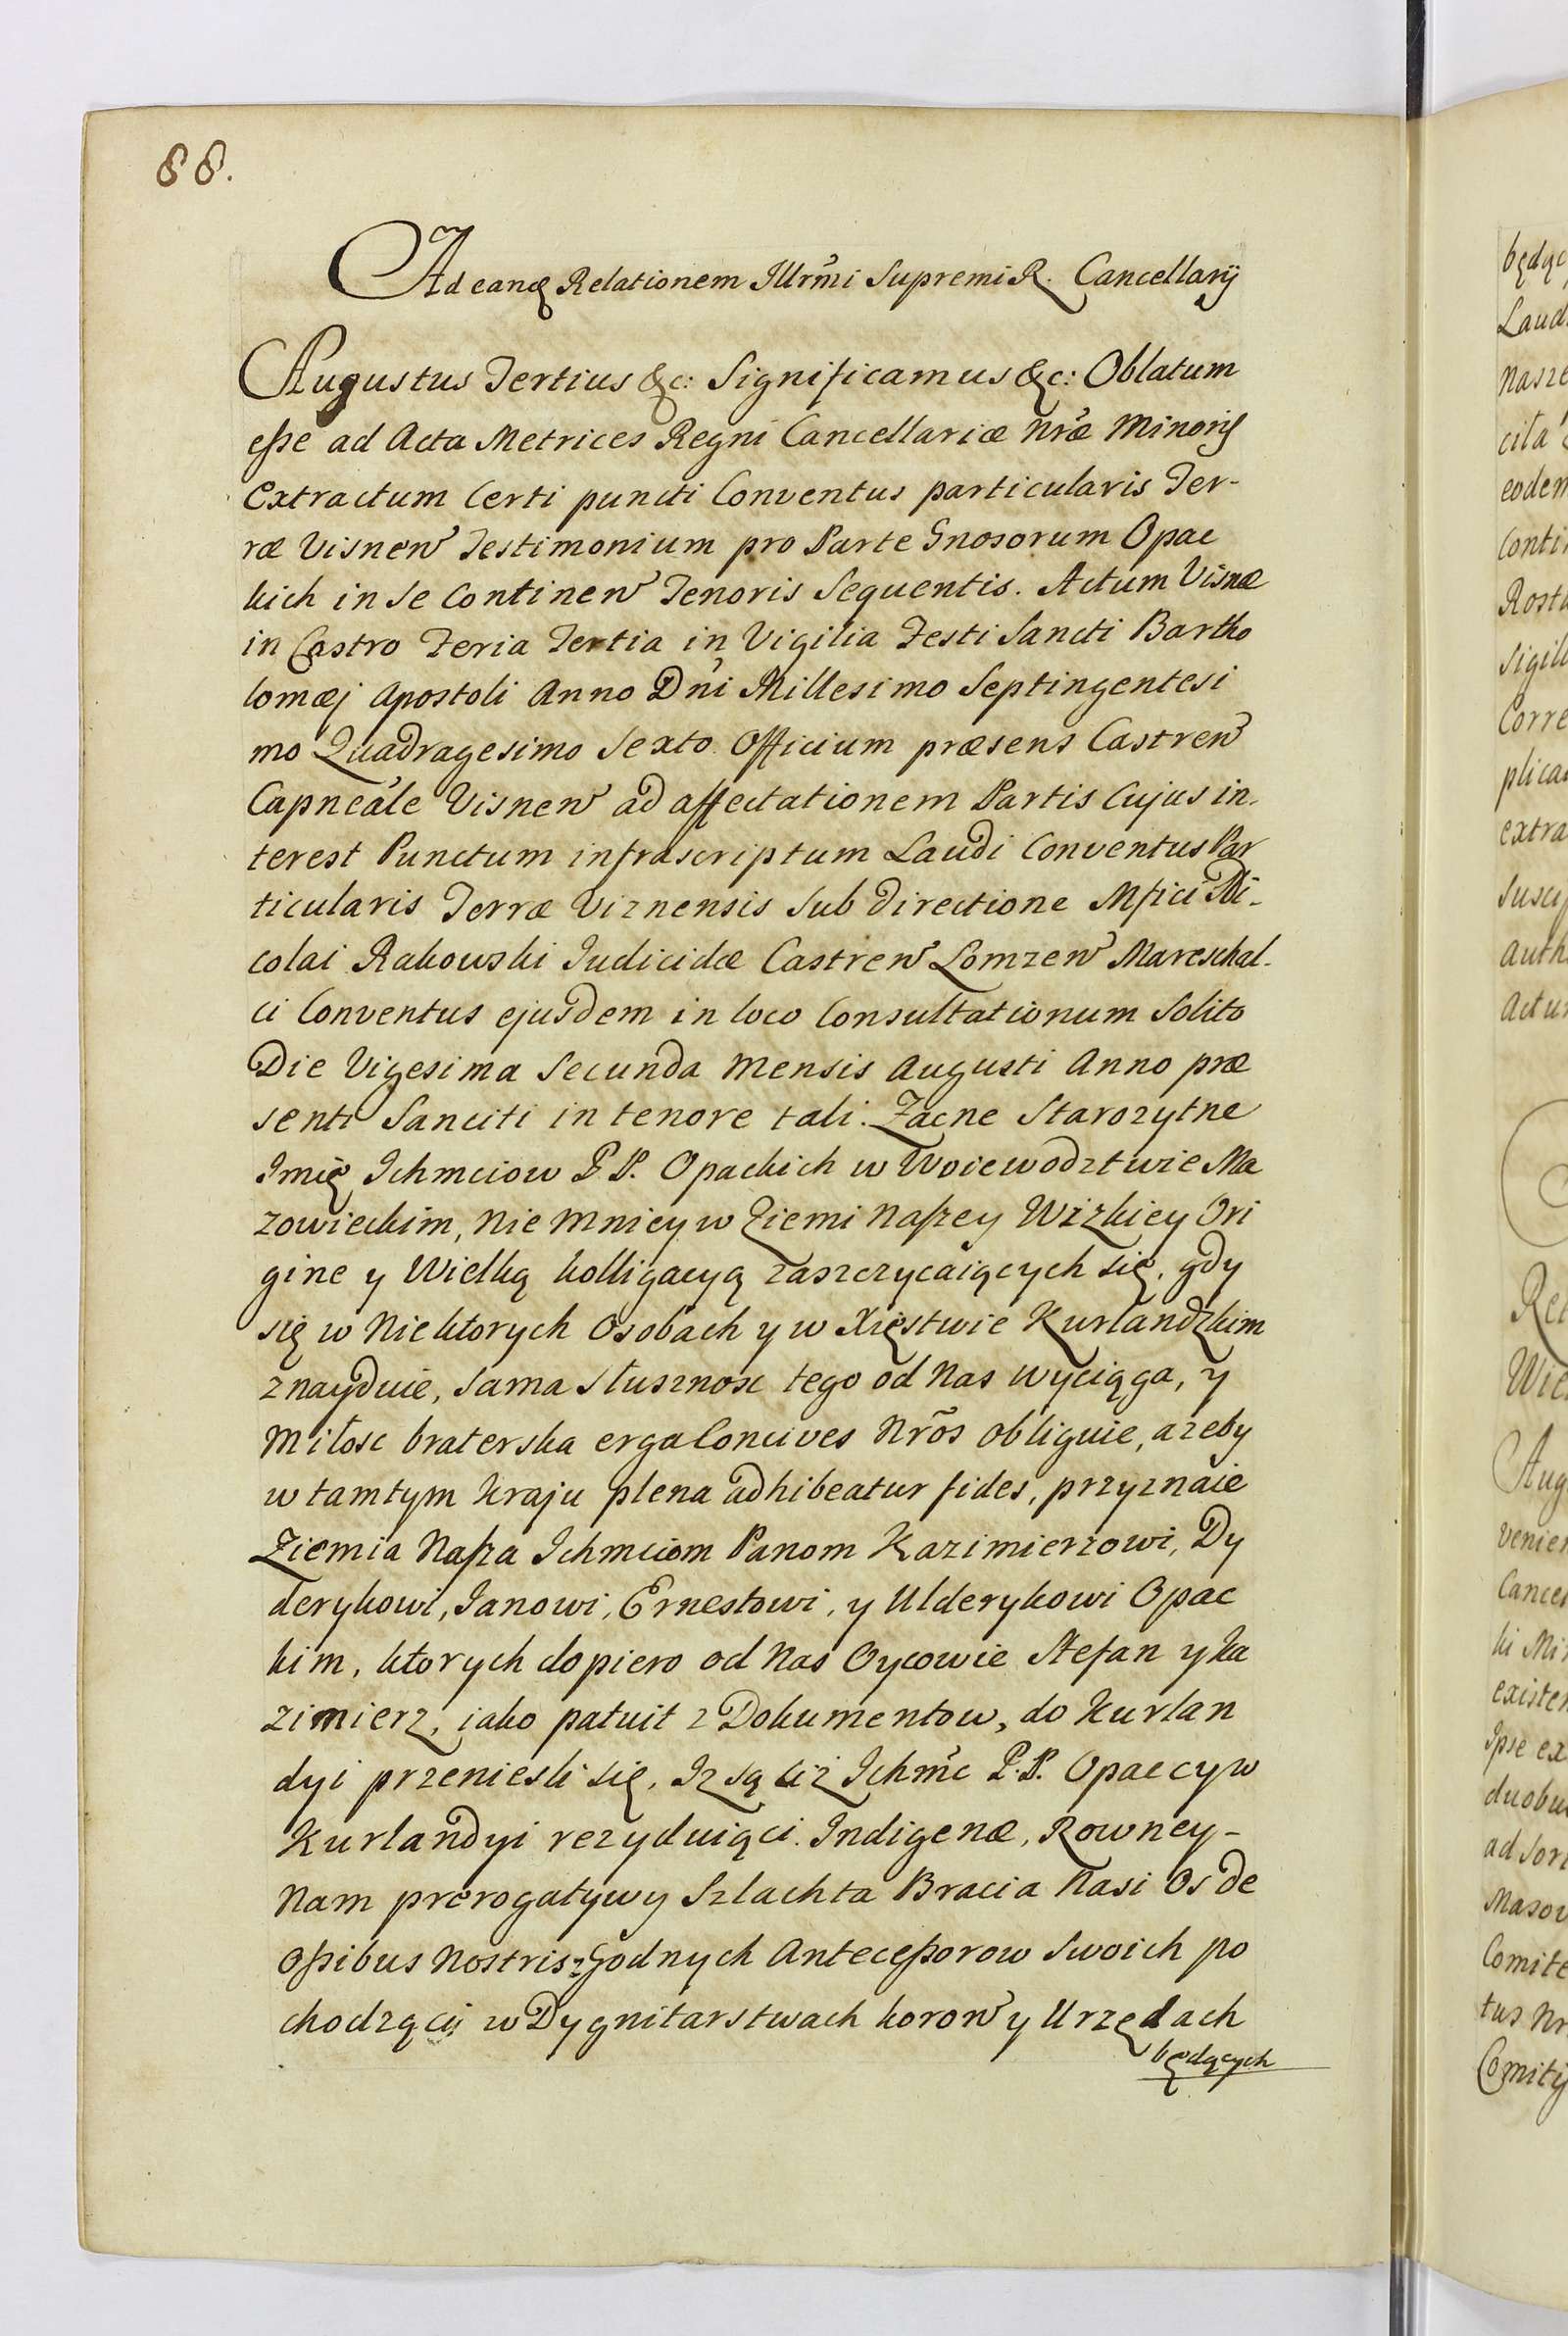 88.
Ad eandq Relationem Illrm̃i Supremi R. Cancellarÿ
Augustus Tertius &c: Significamus &c: Oblatum
eſse ad Acta Metrices Regni Cancellariæ nr̃æ Minoris
Extractum Certi puncti Conventus particularis Ter-
ræ Visnen̄ Testimonium pro Parte Gnosorum Opac
kich in se Continen̄ Tenoris Sequentis. Actum Visnæ
in Castro Feria Tertia in Vigilia Festi Sancti Bartho
lomæj Apostoli Anno Dn̄i Millesimo Septingentesi
mo Quadragesimo Sexto. Officium præsens Castren̄
Capneále Visnen̄ ad affectationem Partis Cujus in-
terest Punctum infrascriptum Laudi Conventus Par
ticularis Terræ Viznensis sub directione Mfici Ni-
colai Rakowski Judicidæ Castren̄ Lomzen̄ Mareschal-
ci Conventus ejusdem in loco Consultationum Solito
Die Vigesima Secunda Mensis Augusti Anno præ
senti Sanciti in tenore tali. Zacne Starozytne
Imię Ichmciow P.P. Opackich w Woiewodztwie Ma
zowieckim, Nie mniey w Ziemi Naſzey Wizkiey Ori
gine y Wielką kolligacyą zaszczycaiących się, gdy
się w Niektorych Osobach y w Xięstwie Kurlandzkim
znayduie, Sama słusznosc tego od Nas wyciąga, y
Miłosc braterska erga Concives Nrõs obliguie, azeby
w tamtym Kraju plena adhibeatur fides, przyznaie
Ziemia Naſza Ichmciom Panom Kazimierzowi, Dy
derykowi, Janowi, Ernestowi, y Ulderykowi Opac
kim, ktorych dopiero od Nas Oycowie Stefan y Ka
zimierz, iako patuit z Dokumentow, do Kurlan
dyi przeniesli się, Iz są ciż Ichm̃c P.P. Opaccy w
Kurlandyi rezyduiąci. Indigenæ, Rowney-
Nam prerogatywy Szlachta Bracia Nasi Os de
Oſsibus Nostris z Godnych Anteceſsorow Swoich po
chodzący w Dygnitarstwach koron̄ y Urzędach
będących
będąc
Laud
Nasze
cita
eodem
Conti
Rost
Sigil
Corre
plica
extra
Susci
Auth
Actu
Rel
Wie
Aug
venie
Cance
ki Mi
existe
Ipse ex
duobu
ad Sor
Masov
Comite
tus Nr
Comitÿ